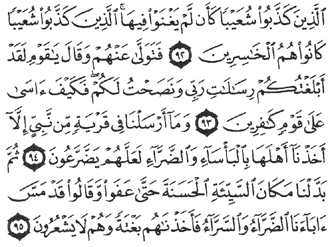 ٱلَّذِينَ كَذَّبُوا۟ شُعَيْبًا كَأَن لَّمْ يَغْنَوْا۟ فِيهَا ۚ ٱلَّذِينَ كَذَّبُوا۟ شُعَيْبًا
كَانُوا۟ هُمُ ٱلْخَـٰسِرِينَ ٩٢ فَتَوَلَّىٰ عَنْهُمْ وَقَالَ يَـٰقَوْمِ لَقَدْ
أَبْلَغْتُكُمْ رِسَـٰلَـٰتِ رَبِّى وَنَصَحْتُ لَكُمْ ۖ فَكَيْفَ ءَاسَىٰ
عَلَىٰ قَوْمٍ كَـٰفِرِينَ ٩٣ وَمَآ أَرْسَلْنَا فِى قَرْيَةٍ مِّن نَّبِىٍّ إِلَّآ
أَخَذْنَآ أَهْلَهَا بِٱلْبَأْسَآءِ وَٱلضَّرَّآءِ لَعَلَّهُمْ يَضَّرَّعُونَ ٩٤ ثُمَّ
بَدَّلْنَا مَكَانَ ٱلسَّيِّئَةِ ٱلْحَسَنَةَ حَتَّىٰ عَفَوا۟ وَّقَالُوا۟ قَدْ مَسَّ
ءَابَآءَنَا ٱلضَّرَّآءُ وَٱلسَّرَّآءُ فَأَخَذْنَـٰهُم بَغْتَةً وَهُمْ لَا يَشْعُرُونَ ٩٥